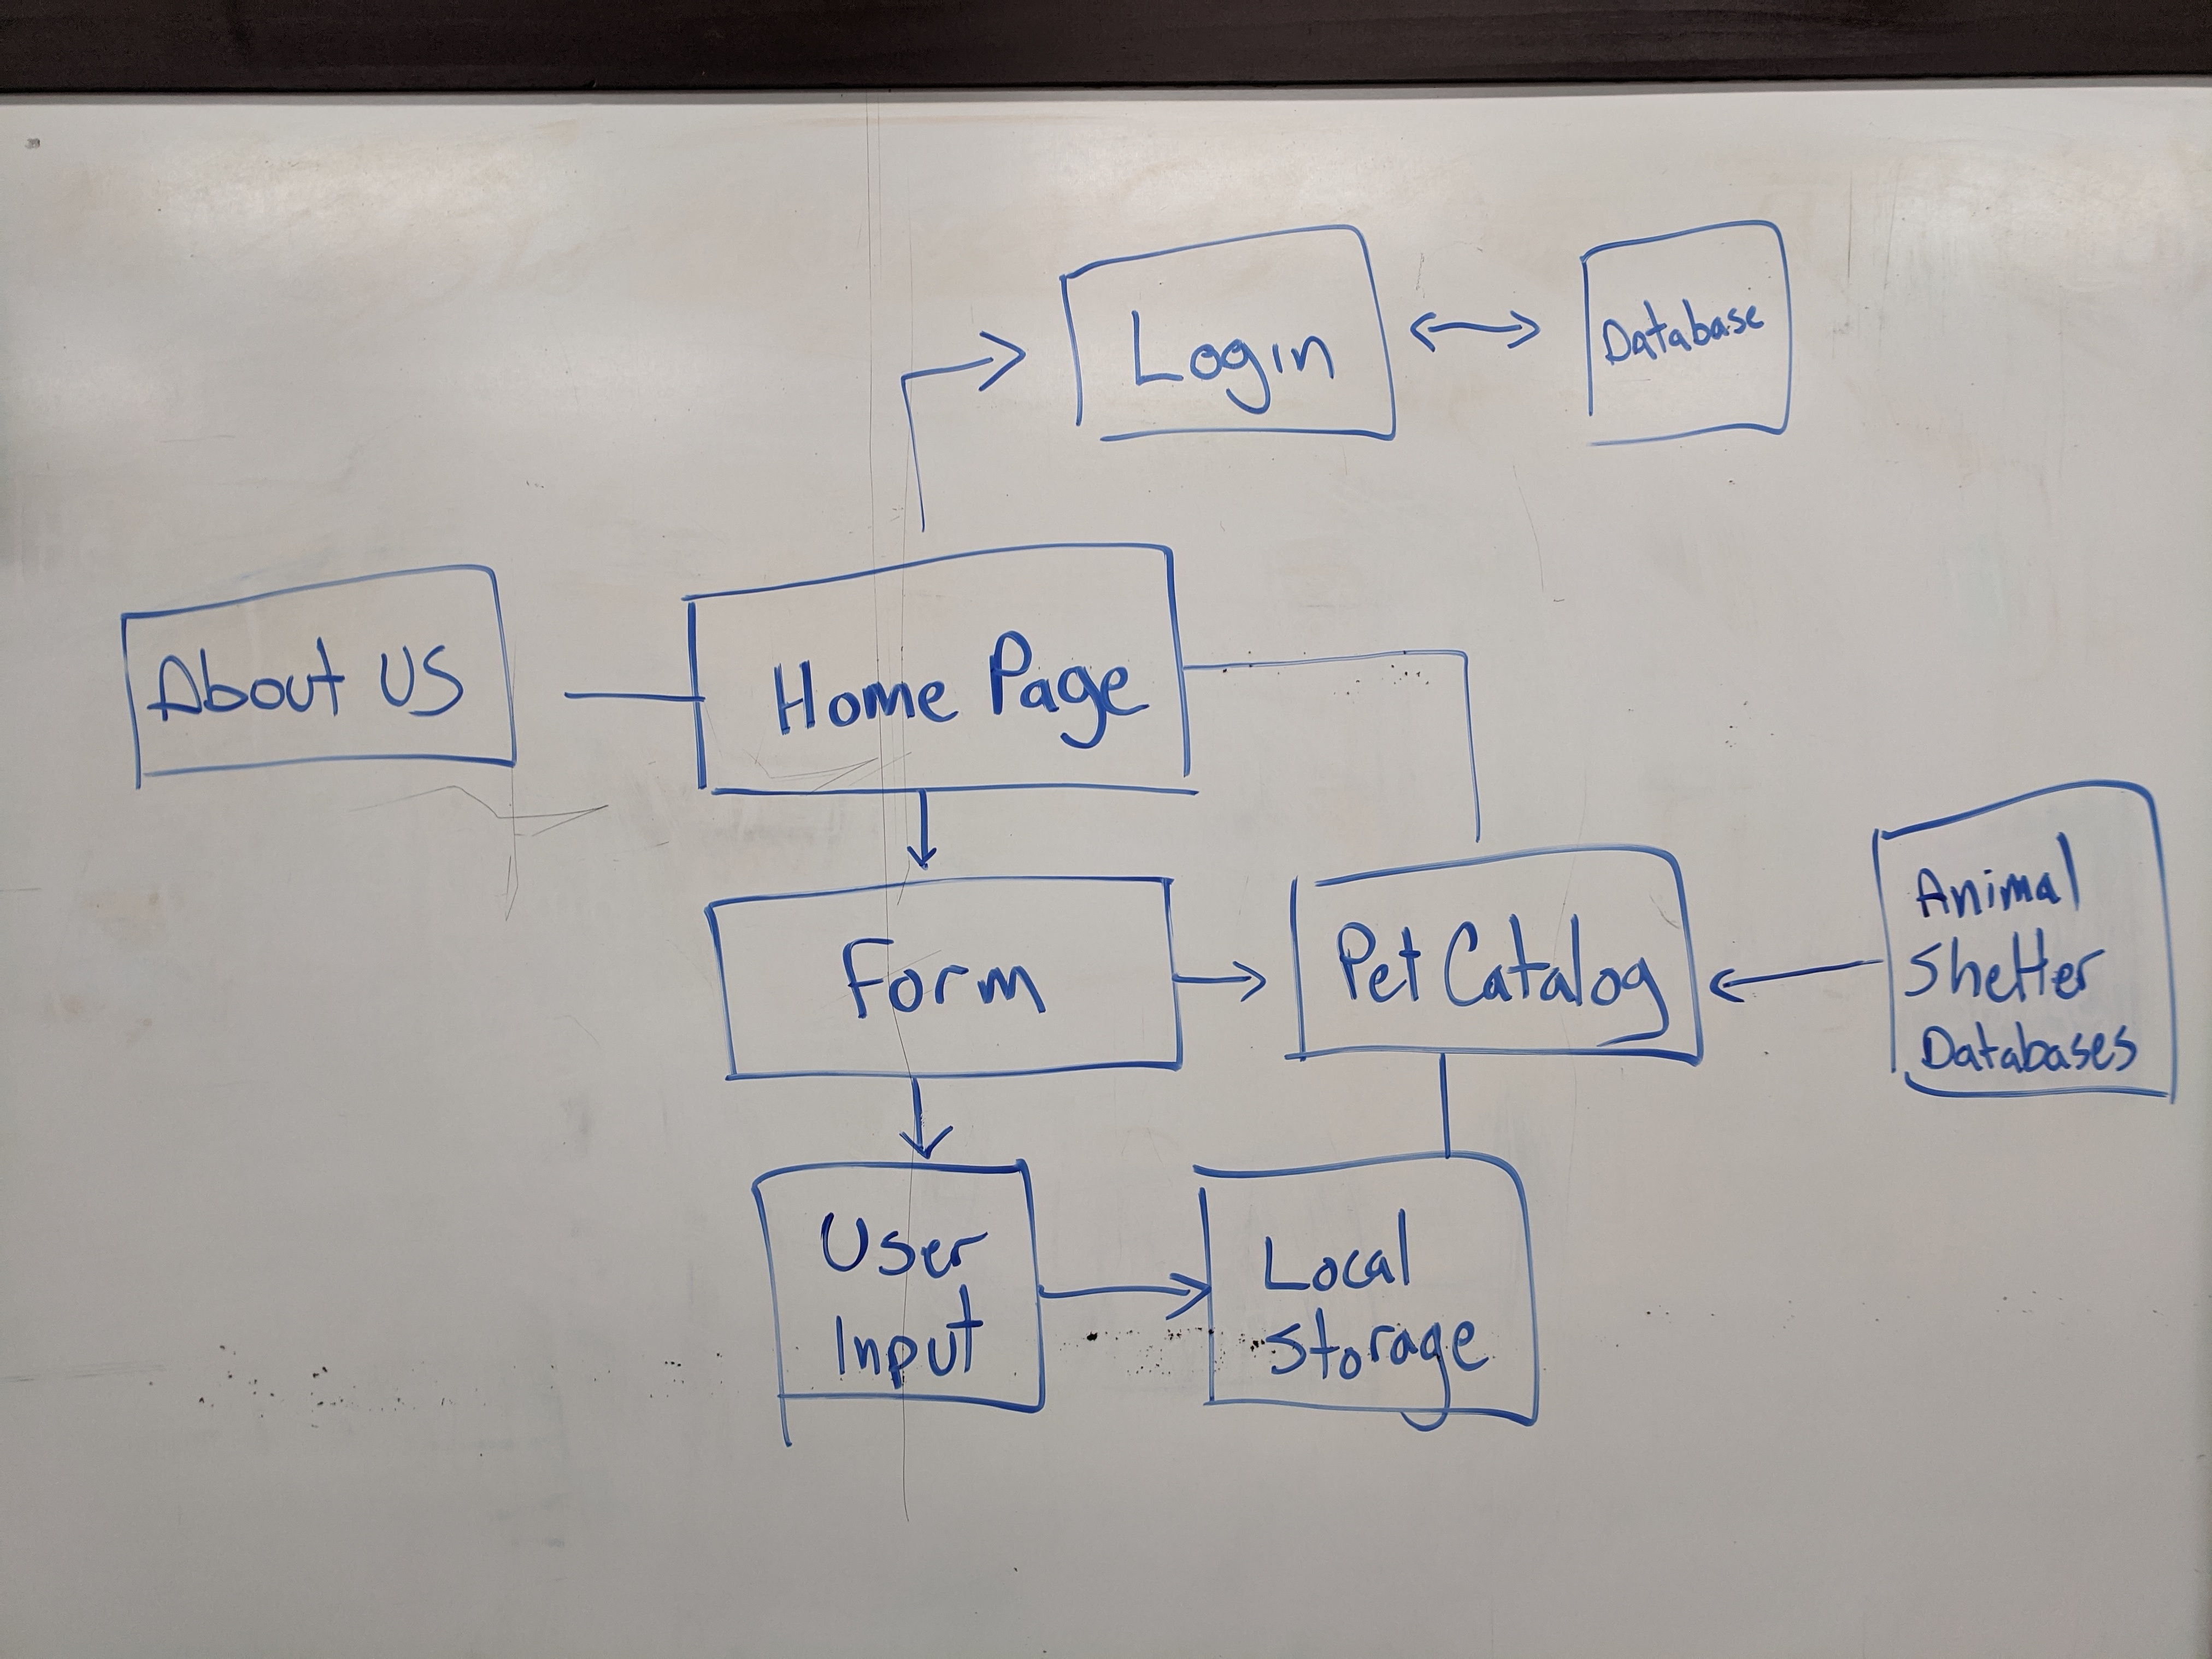 Login
Database
About US
Home Page
Form
Pet Catalog
Animal
Shelter
Databases
User
Input
Local
Storage